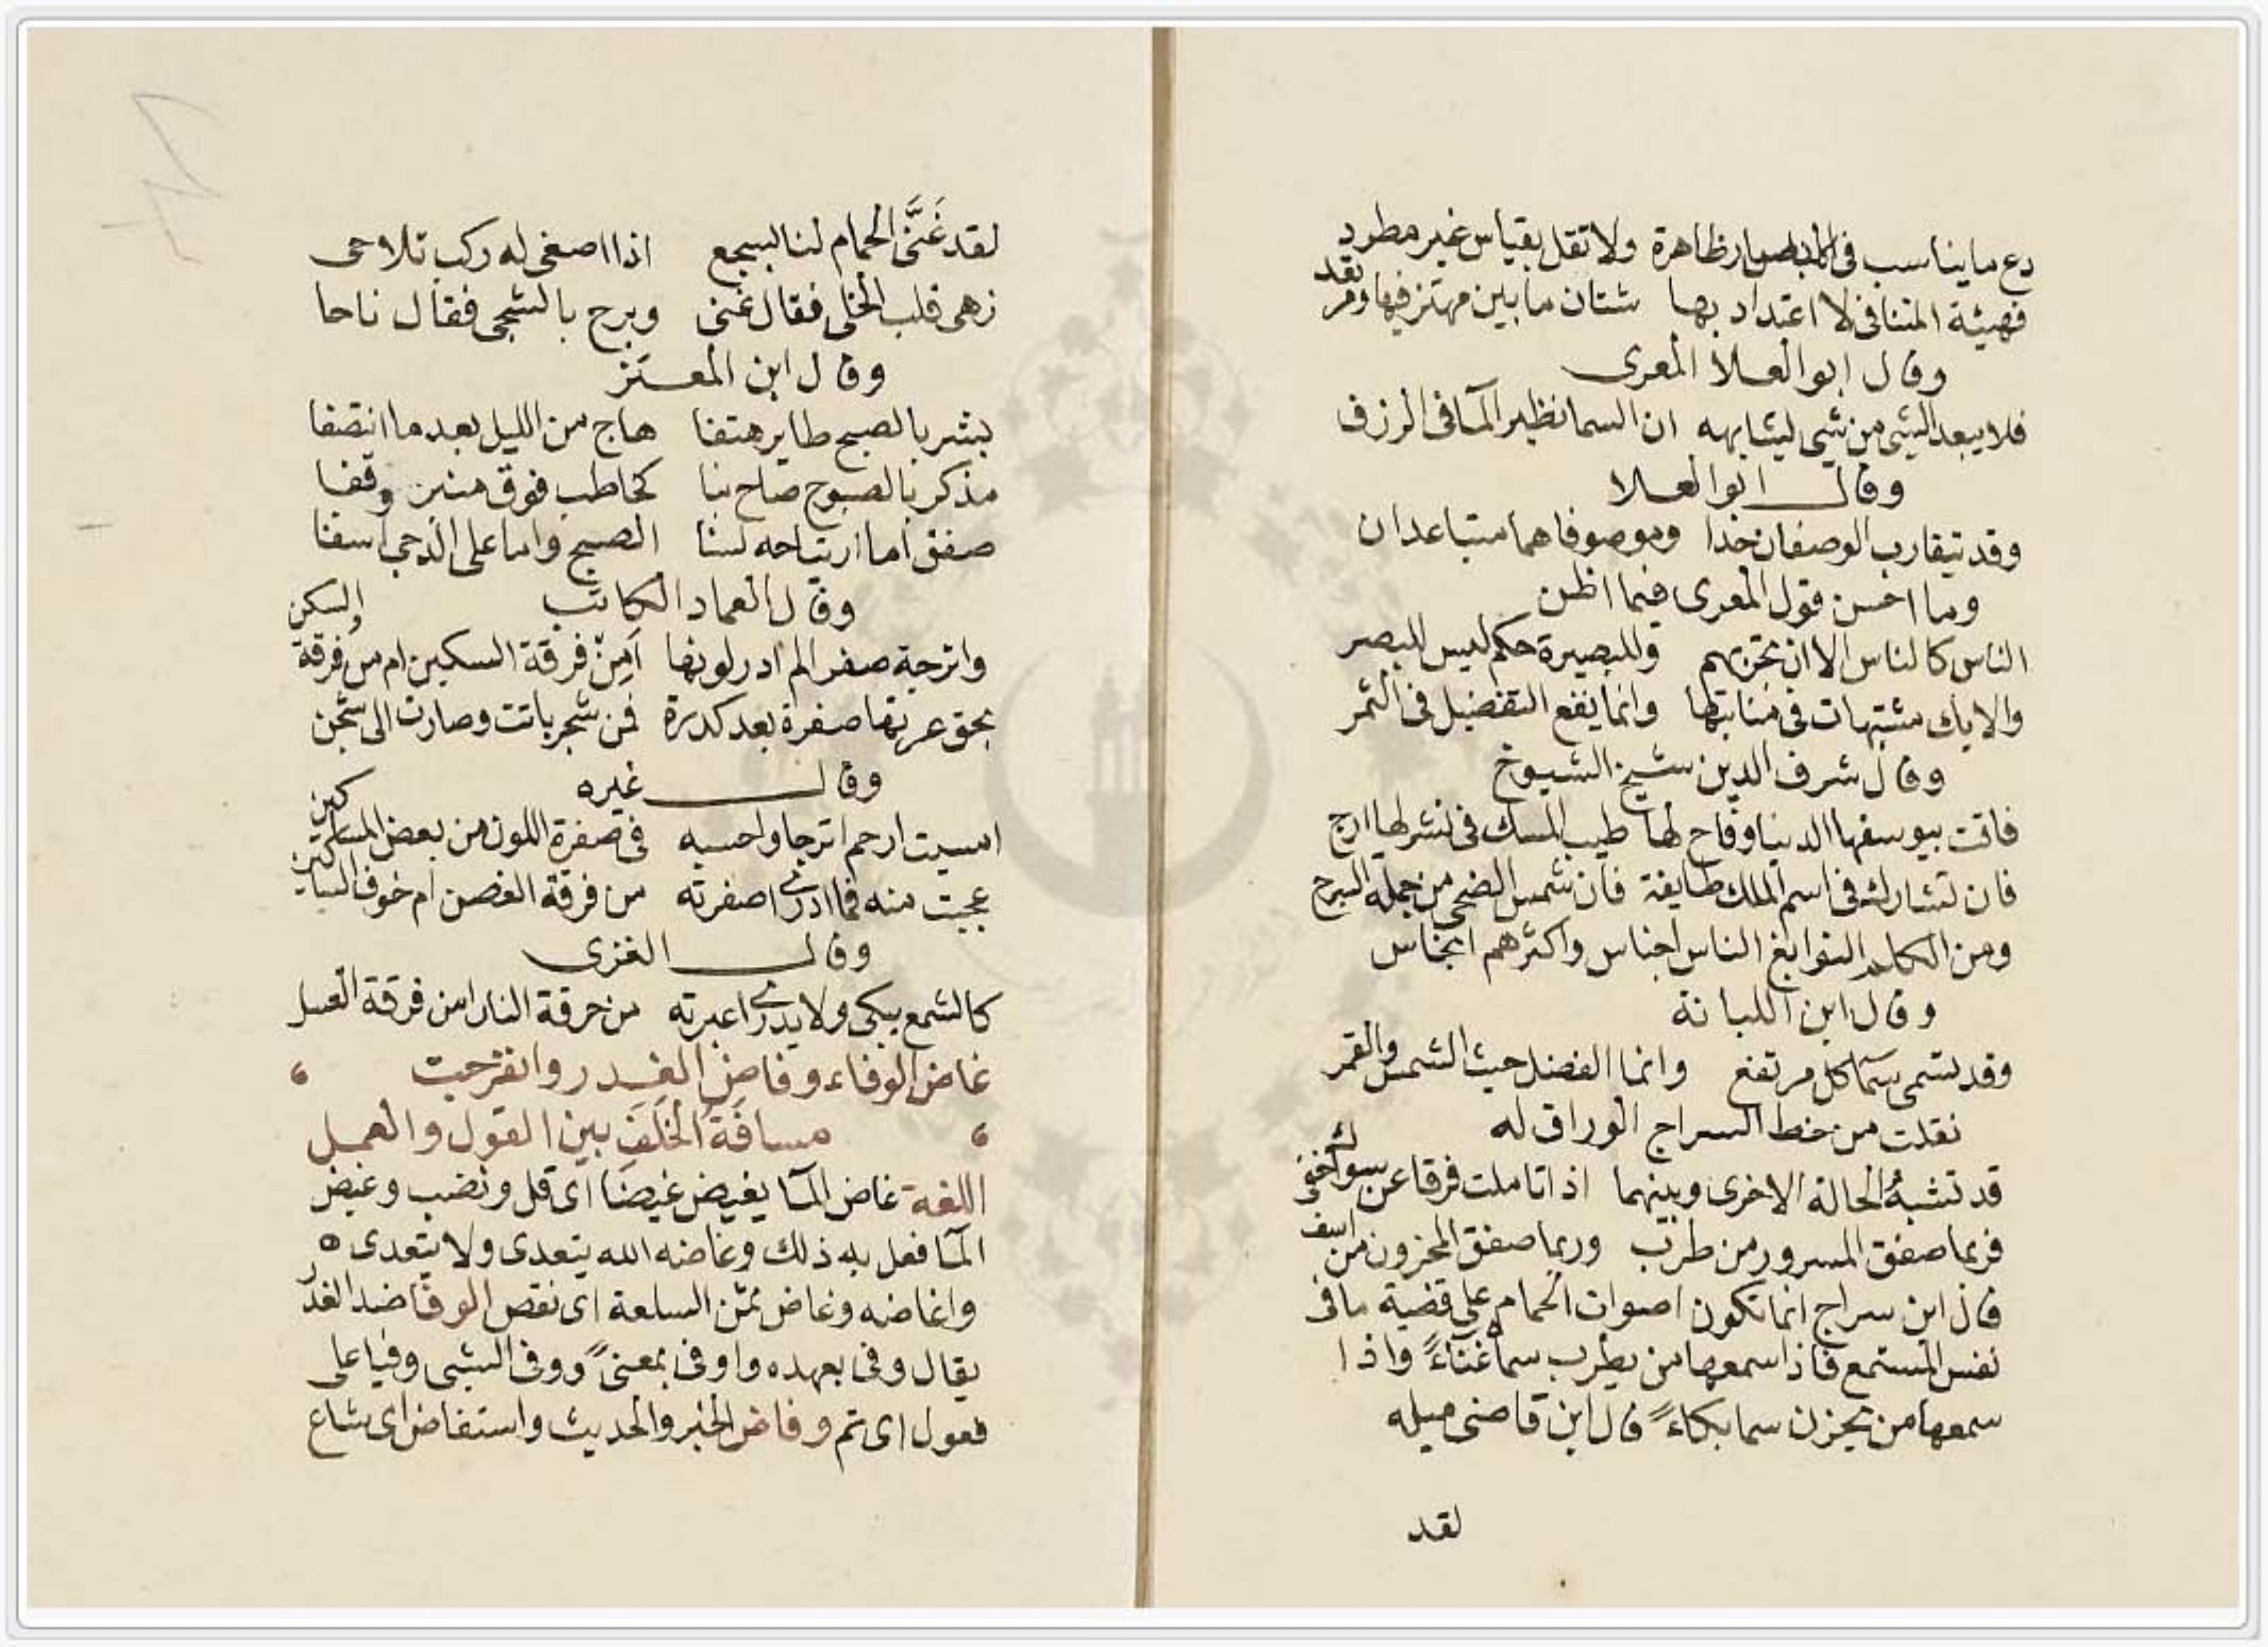 دع ما يناسب في الابصار ظاهرة ولا تقل بقياس غير مطرد
فهيئة المتنافى لا اعتداد بها شتان ما بين مهتز فيها ومر
تعد
وقال ابو العلا المعرى
فلا يبعد الشى من شى يشابهه ان السما نظير المآ فى الزرق
وقال ابو العلا
وقد يتقارب الوصفان جدا وموصوفاهما متباعدان
وما احسن قول المعرى فيما اظن
الناس كالناس الا ان تجربهم وللبصيرة حكم ليس للبصر
والايك مشتبهات فى منابتها وانما يقع التفضيل فى الثمر
وقال شرف الدين شيخ الشيوخ
فاقت بيوسفها الدنيا وفاح لها طيب المسك فى نشر لها ارج
فان تشارك فى اسم الملك طايفة فان شمس الضحى من جملة السرج
ومن الكلم النوابغ الناس اجناس واكثرهم انجاس
وقال ابن اللبانة
وقد تسمى سمآ كل مرتفع وانما الفضل حيث الشمس والقمر
نقلت من خط السراج الوراق له
قد تشبهُ الحالة الاخرى وبينهما اذا تاملت فرقا عن سواك خفى
فربما صفق المسرور من طرب وربما صفق المحزون من اسف
قال ابن سراج انما تكون اصوات الحمام على قضية ما فى
نفس المستمع فاذا سمعها من يطرب سماه غنآءً واذا
سمعها من يحزن سما بكاءً قال ابن قاضى ميله
لقد
لقد غَنَّى الحمام لنا بسجع اذا اصغى له ركب تلاحى
زهى قلب الخلى فقال غنى وبرح بالشجى فقال ناحا
وقال ابن المعتز
بشر بالصبح طاير هتفا هاج من الليل بعد ما انتصفا
مذكر بالصبوح صاح بنا كخاطب فوق منبر وقفا
صفق اما ارتياحه لسنا الصبح واما على الدجى اسفا
وقال العماد الكاتب
واترجة صفرا لم ادر لونها اَمِنْ فرقة السكين ام من فرقة السكن
بحق عرتها صفرة بعد كدرة فمن شجر باتت وصارت الى شجن
وقال غيره
امسيت ارحم اترجا واحسبه فى صفرة اللون من بعض المساكين
عجبت منه فما ادرى اصفرته من فرقة الغصن ام خوف السكاكين
وقال الغزى
كالشمع يبكى ولا يدرى اعبرته من حرقة النار ام من فرقة العسل
غاض الوفاء وفاض الغدر وانفرجت
مسافَةُ الخَلَفَ بين القول والعمل
اللغة غاض المآ يغيض غيضا اى قل ونضب وغيض
المآ فعل به ذلك وغاضه الله يتعدى ولا يتعدى ه
واغاضه وغاض ثمن السلعة اى نقص الوفا ضد الغدر
يقال وفى بعهده واوفى بمعنىً ووفى الشى وفيا على
فعول اى تم وفاض الخبر والحديث واستفاض اى شاع